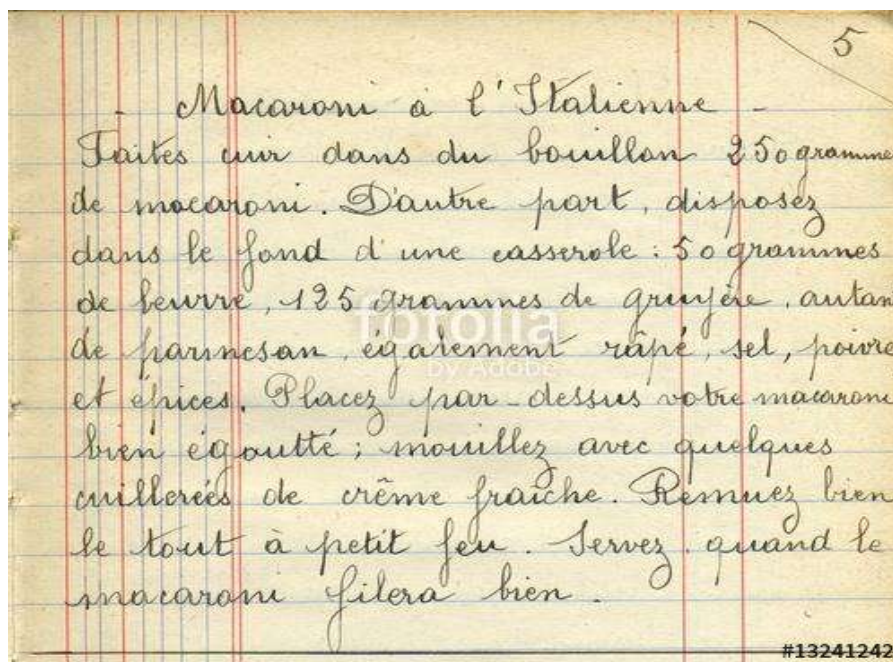 5
- Macaroni à l'Italienne -
Faites cuir dans du bouillon 250 gramme
de macaroni. D'autre part, disposez
dans le fond d'une casserole : 50 grammes
de beurre, 125 grammes de gruyère, autan
de parmesan, également râpé, sel, poivre
et épices. Placez par-dessus votre macaroni
bien égoutté ; mouillez avec quelques
cuillerées de crême fraiche. Remuez bien
le tout à petit feu. Servez quand le
macaroni filera bien.
fotolia
by Adobe
#13241242